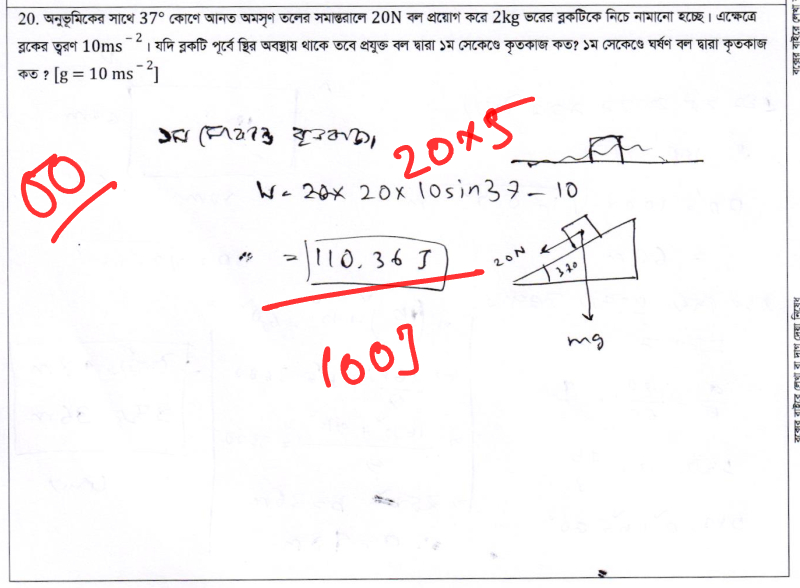 20. অনুভূমিকের সাথে 37° কোণে আনত অমসৃণ তলের সমান্তরালে 20N বল প্রয়োগ করে 2kg ভরের ব্লকটিকে নিচে নামানো হচ্ছে। এক্ষেত্রে
ব্লকের ত্বরণ 10ms⁻²। যদি ব্লকটি পূর্বে স্থির অবস্থায় থাকে তবে প্রযুক্ত বল দ্বারা ১ম সেকেন্ডে কৃতকাজ কত? ১ম সেকেন্ডে ঘর্ষণ বল দ্বারা কৃতকাজ
কত? [g = 10 ms⁻²]
১ম সেকেন্ডে কৃতকাজ,
20×5
00
W = 20× 20× 10sin37 - 10
= 110.36 J
20N
37°
mg
100J